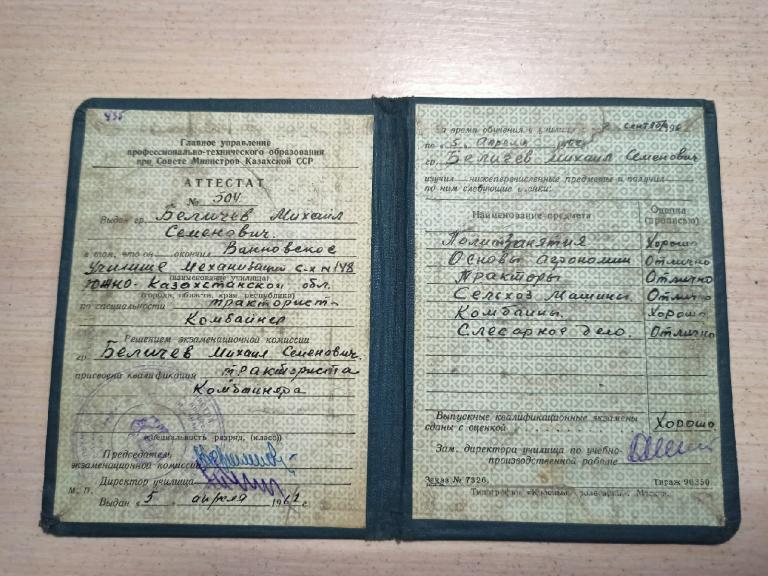 Главное управление
профессионально-технического образования
при Совете Министров Казахской ССР
АТТЕСТАТ
№ 504
Выдан гр. Беличев Михаил
Семенович.
в том, что он окончил Ванновское
Училище Механизации с-х N 148
(наименование училища)
Южно-Казахстанской обл.
(города, области, края республики)
по специальности тракторист-
Комбайнер
Решением экзаменационной комиссии
гр. Беличев Михаил Семенович.
присвоена квалификация тракториста
Комбайнера
(специальность разряд, (класс))
Председатель
экзаменационной комиссии
Директор училища
М. П.
Выдан « 5 » апреля 1962 г.
За время обучения в училище с сентября
по « 5 » апреля
гр. Беличев Михаил Семенович
изучил нижеперечисленные предметы и получил
по ним следующие оценки:
Наименование предмета Оценка
(прописью)
Политзанятия Хорошо
Основы агрономии Отлично
Тракторы Отлично
Сельхоз Машины Отлично
Комбайны. Хорошо
Слесарное дело. Отлично
Выпускные квалификационные экзамены
сданы с оценкой Хорошо
Зам. директора училища по учебно-
производственной работе
Заказ № 7326. Тираж 90350
Типография Москва.